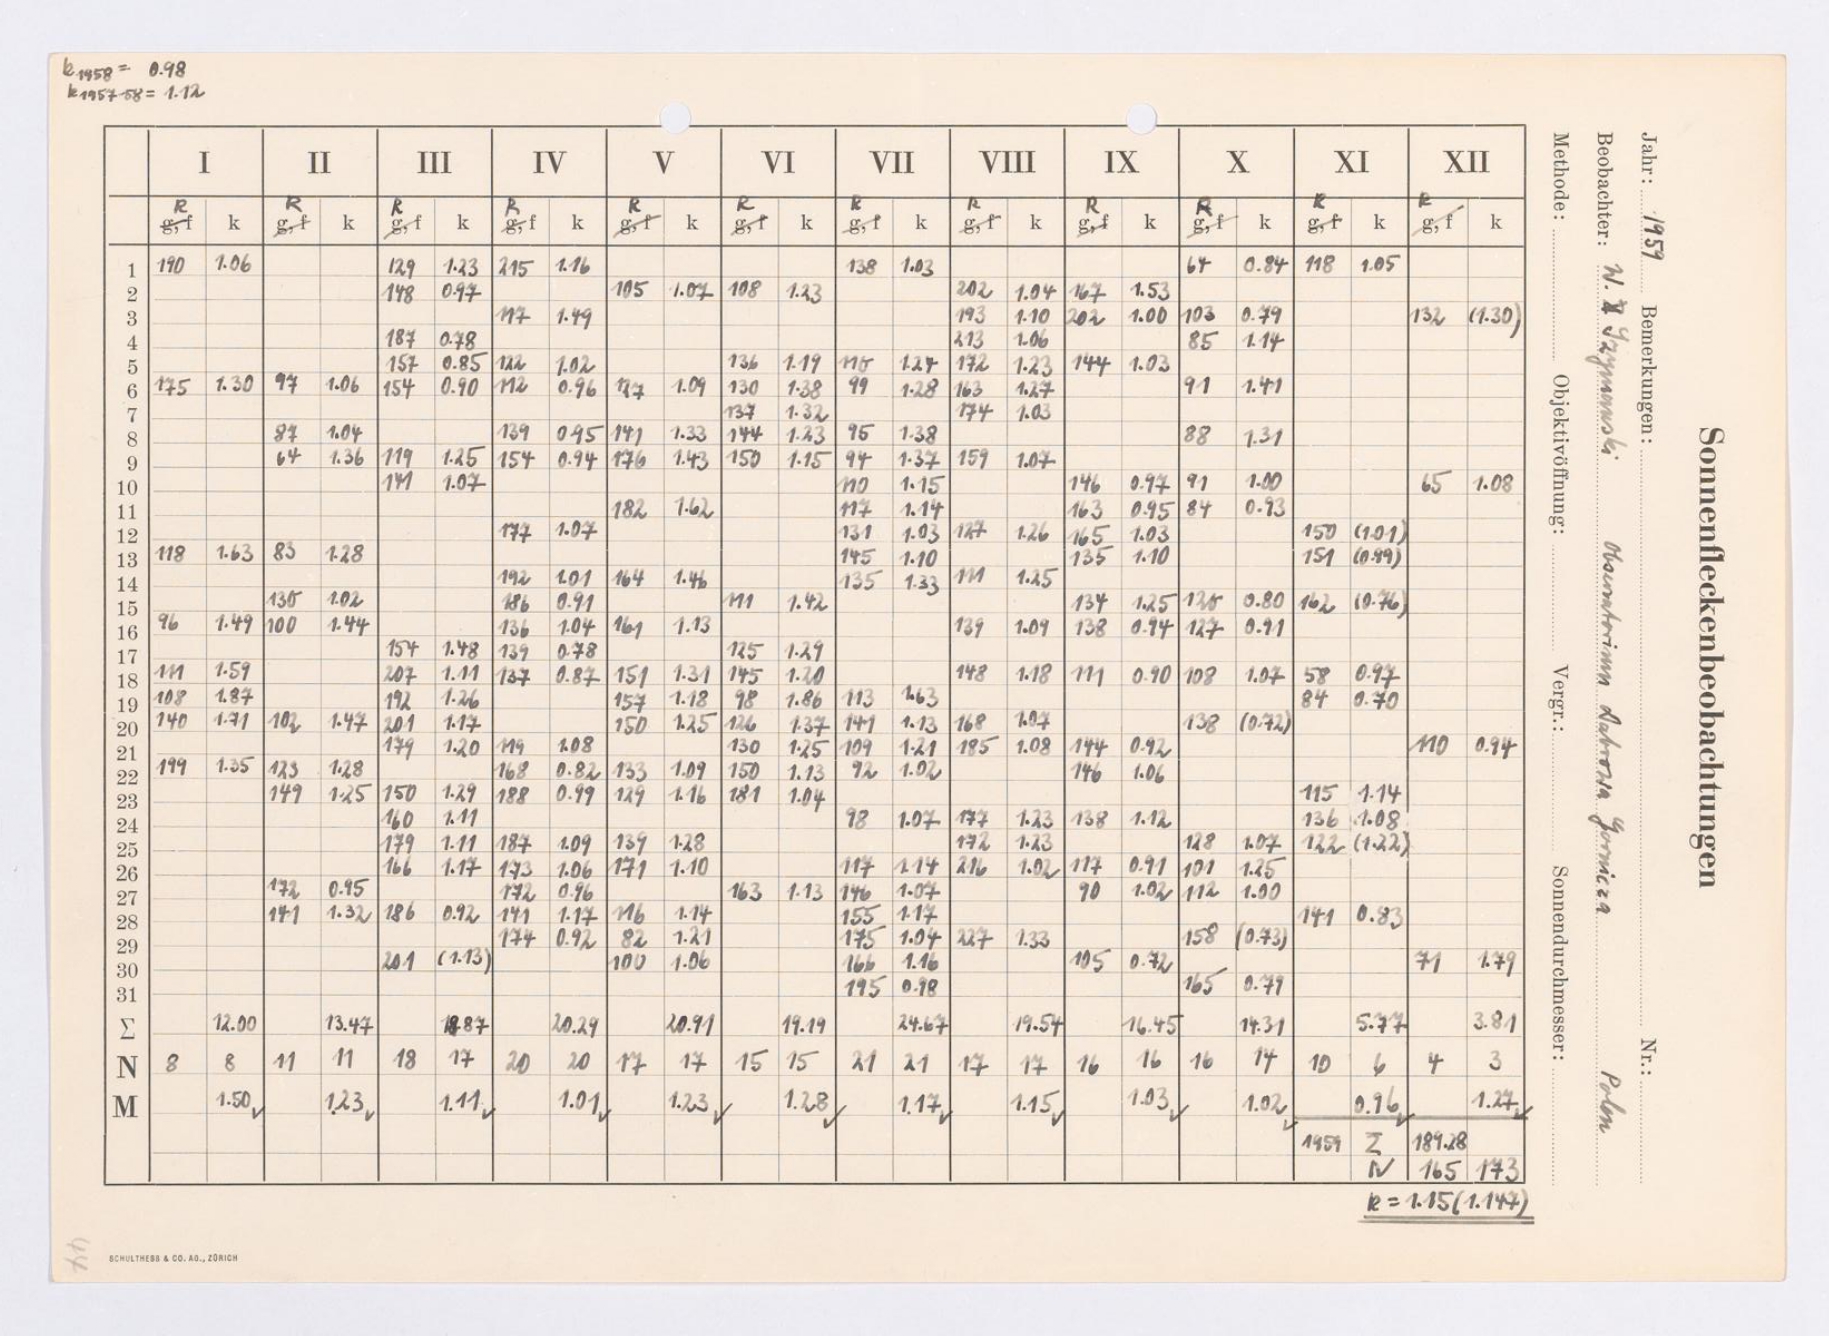 k1958 = 0.98
k1957-58 = 1.12
Sonnenfleckenbeobachtungen
Jahr: 1959 Bemerkungen: Nr.:
Beobachter: W. Szymanski Observatorium Dabrowa Gornicza Polen
Methode: Objektivöffnung: Vergr.: Sonnendurchmesser:
I II III IV V VI VII VIII IX X XI XII
R R R R R R R R R R R R
g, f k g, f k g, f k g, f k g, f k g, f k g, f k g, f k g, f k g, f k g, f k g, f k
1 190 1.06 129 1.23 215 1.16 138 1.03 64 0.84 118 1.05
2 148 0.97 105 1.07 108 1.23 202 1.04 167 1.53
3 117 1.49 193 1.10 202 1.00 103 0.79 132 (1.30)
4 187 0.78 213 1.06 85 1.14
5 157 0.85 122 1.02 136 1.19 110 1.24 172 1.23 144 1.03
6 175 1.30 97 1.06 154 0.90 112 0.96 127 1.09 130 1.38 99 1.28 163 1.27 91 1.41
7 137 1.32 174 1.03
8 87 1.04 139 0.95 141 1.33 144 1.23 95 1.38 88 1.31
9 64 1.36 119 1.25 154 0.94 176 1.43 150 1.15 94 1.37 159 1.07
10 141 1.07 110 1.15 146 0.97 91 1.00 65 1.08
11 182 1.62 117 1.14 163 0.95 84 0.93
12 177 1.07 131 1.03 127 1.26 165 1.03 150 (1.01)
13 118 1.63 83 1.28 145 1.10 135 1.10 151 (0.99)
14 192 1.01 164 1.46 135 1.33 111 1.25
15 130 1.02 186 0.91 111 1.42 134 1.25 120 0.80 162 (0.76)
16 96 1.49 100 1.44 136 1.04 161 1.13 139 1.09 138 0.94 127 0.91
17 154 1.48 139 0.78 125 1.29
18 111 1.59 207 1.11 137 0.87 151 1.31 145 1.20 148 1.18 111 0.90 108 1.07 58 0.97
19 108 1.87 192 1.26 157 1.18 98 1.86 113 1.63 84 0.70
20 140 1.71 102 1.47 201 1.17 150 1.25 126 1.37 141 1.13 168 1.07 138 (0.72)
21 179 1.20 119 1.08 130 1.25 109 1.21 185 1.08 144 0.92 110 0.94
22 199 1.35 123 1.28 168 0.82 133 1.09 150 1.13 92 1.02 146 1.06
23 149 1.25 150 1.29 188 0.99 129 1.16 181 1.04 115 1.14
24 160 1.11 98 1.07 177 1.23 138 1.12 136 1.08
25 179 1.11 187 1.09 139 1.28 172 1.23 128 1.07 122 (1.22)
26 166 1.17 173 1.06 171 1.10 117 1.14 216 1.02 117 0.91 101 1.25
27 172 0.95 172 0.96 163 1.13 146 1.07 90 1.02 112 1.00
28 141 1.32 186 0.92 141 1.17 116 1.14 155 1.17 141 0.83
29 174 0.92 82 1.21 175 1.04 227 1.33 158 (0.73)
30 201 (1.13) 100 1.06 166 1.16 105 0.72 71 1.79
31 195 0.98 165 0.79
Σ 12.00 13.47 18.87 20.29 20.91 19.19 24.67 19.54 16.45 14.31 5.77 3.81
N 8 8 11 11 18 17 20 20 17 17 15 15 21 21 17 17 16 16 16 14 10 6 4 3
M 1.50 1.23 1.11 1.01 1.23 1.28 1.17 1.15 1.03 1.02 0.96 1.27
1959 Σ 189.28
N 165 173
k = 1.15 (1.147)
44
SCHULTHESS & CO. AG., ZÜRICH